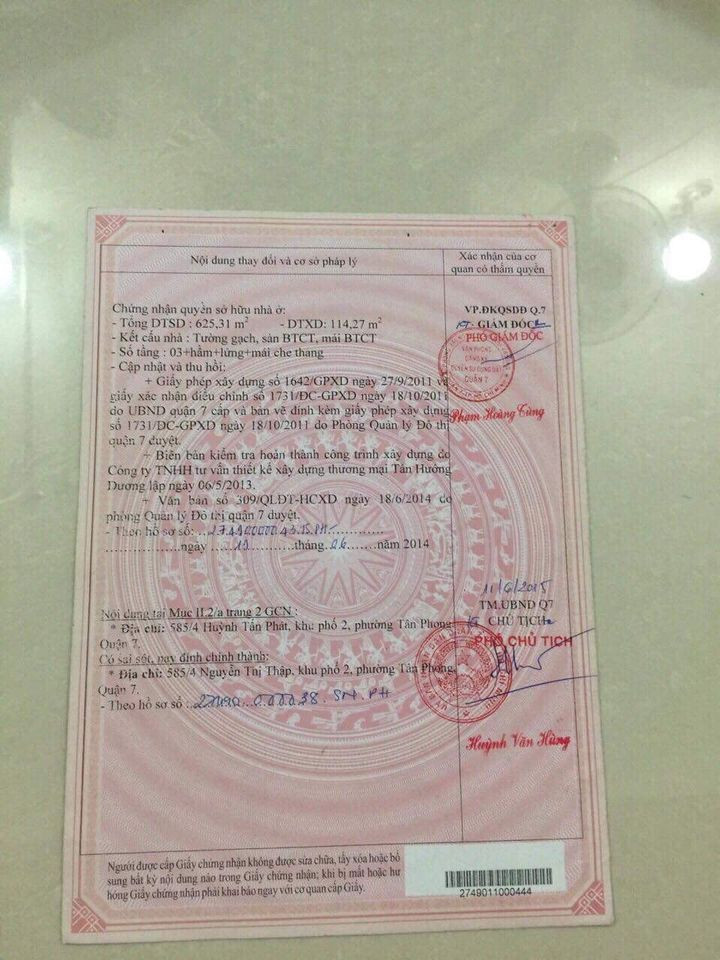 Nội dung thay đổi và cơ sở pháp lý
Xác nhận của cơ
quan có thẩm quyền
Chứng nhận quyền sở hữu nhà ở:
- Tổng DTSD : 625,31 m² - DTXD: 114,27 m²
- Kết cấu nhà : Tường gạch, sàn BTCT, mái BTCT
- Số tầng : 03+hầm+lửng+mái che thang
- Cập nhật và thu hồi:
+ Giấy phép xây dựng số 1642/GPXD ngày 27/9/2011 và
giấy xác nhận điều chỉnh số 1731/ĐC-GPXD ngày 18/10/2011
do UBND quận 7 cấp và bản vẽ đính kèm giấy phép xây dựng
số 1731/ĐC-GPXD ngày 18/10/2011 do Phòng Quản lý Đô thị
quận 7 duyệt.
+ Biên bản kiểm tra hoàn thành công trình xây dựng do
Công ty TNHH tư vấn thiết kế xây dựng thương mại Tân Hướng
Dương lập ngày 06/5/2013.
+ Văn bản số 309/QLĐT-HCXD ngày 18/6/2014 do
phòng Quản lý Đô thị quận 7 duyệt.
- Theo hồ sơ số:
ngày 19 tháng 06 năm 2014
VP.ĐKQSDĐ Q.7
KT. GIÁM ĐỐC
PHÓ GIÁM ĐỐC
VĂN PHÒNG
ĐĂNG KÝ
QUYỀN SỬ DỤNG ĐẤT
QUẬN 7
Phạm Hoàng Tùng
Nội dung tại Mục II.2/a trang 2 GCN :
* Địa chỉ: 585/4 Huỳnh Tấn Phát, khu phố 2, phường Tân Phong
Quận 7.
Có sai sót, nay đính chính thành:
* Địa chỉ: 585/4 Nguyễn Thị Thập, khu phố 2, phường Tân Phong,
Quận 7.
- Theo hồ sơ số :
11/6/2015
TM.UBND Q7
KT. CHỦ TỊCH
PHÓ CHỦ TỊCH
Huỳnh Văn Hùng
Người được cấp Giấy chứng nhận không được sửa chữa, tẩy xóa hoặc bổ
sung bất kỳ nội dung nào trong Giấy chứng nhận; khi bị mất hoặc hư
hỏng Giấy chứng nhận phải khai báo ngay với cơ quan cấp Giấy.
2749011000444